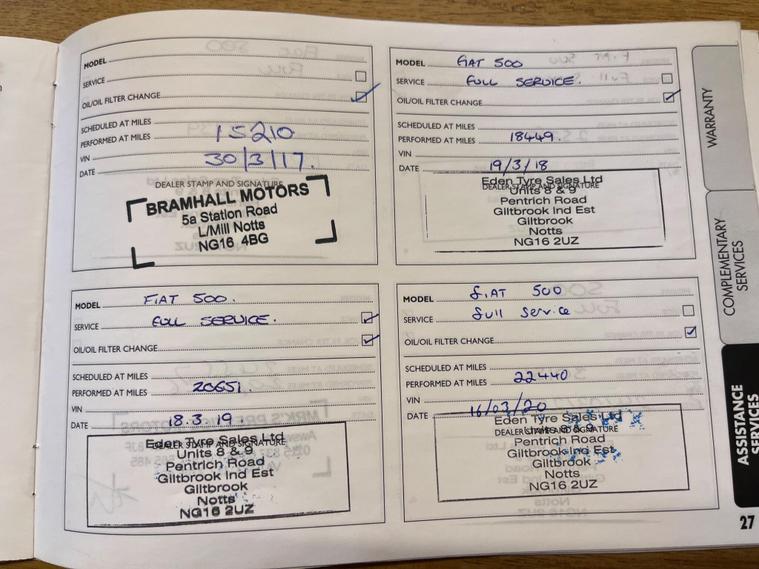 MODEL
SERVICE
OIL/OIL FILTER CHANGE
SCHEDULED AT MILES
PERFORMED AT MILES 15210
VIN
DATE 30/3/17.
DEALER STAMP AND SIGNATURE
BRAMHALL MOTORS
5a Station Road
L/Mill Notts
NG16 4BG
MODEL FIAT 500
SERVICE FULL SERVICE.
OIL/OIL FILTER CHANGE
SCHEDULED AT MILES
PERFORMED AT MILES 18449.
VIN
DATE 19/3/18
DEALER STAMP AND SIGNATURE
Eden Tyre Sales Ltd
Units 8 & 9
Pentrich Road
Giltbrook Ind Est
Giltbrook
Notts
NG16 2UZ
MODEL FIAT 500.
SERVICE FULL SERVICE.
OIL/OIL FILTER CHANGE
SCHEDULED AT MILES
PERFORMED AT MILES 20651.
VIN
DATE 18.3.19.
DEALER STAMP AND SIGNATURE
Eden Tyre Sales Ltd
Units 8 & 9
Pentrich Road
Giltbrook Ind Est
Giltbrook
Notts
NG16 2UZ
MODEL FIAT 500
SERVICE Full Service
OIL/OIL FILTER CHANGE
SCHEDULED AT MILES
PERFORMED AT MILES 22440
VIN
DATE 16/03/20
DEALER STAMP AND SIGNATURE
Eden Tyre Sales Ltd
Units 8 & 9
Pentrich Road
Giltbrook Ind Est
Giltbrook
Notts
NG16 2UZ
WARRANTY
COMPLEMENTARY
SERVICES
ASSISTANCE
SERVICES
27